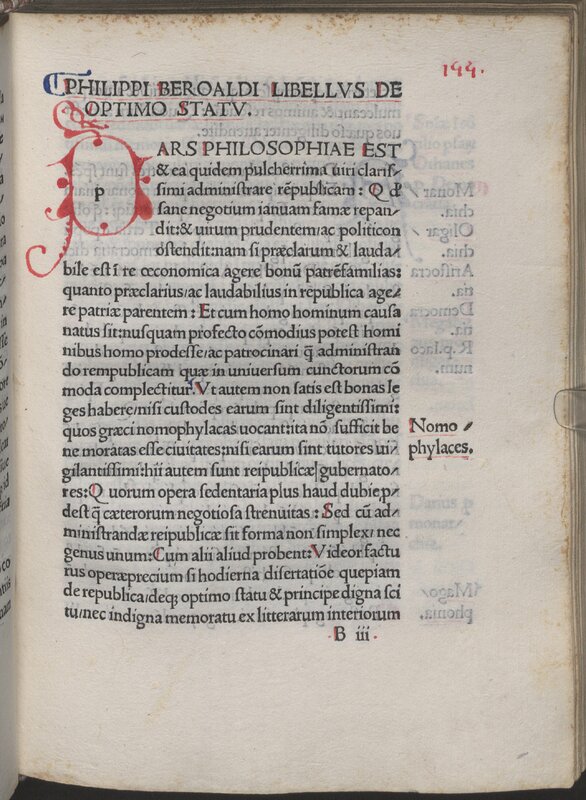 144.
PHILIPPI BEROALDI LIBELLVS DE
OPTIMO STATV.
p
ARS PHILOSOPHIAE EST
& ea quidem pulcherrima uiri claris⸗
simi administrare rēpublicam : Q d̕
sane negotium ianuam famæ repan⸗
dit:& uirum prudentem/ac politicon
ostendit:nam si præclarum & lauda⸗
bile est ī re œconomica agere bonū patrēfamilias:
quanto præclarius/ac laudabilius in republica age⸗
re patriæ parentem : Et cum homo hominum causa
natus sit:nusquam profecto cōmodius potest homi
nibus homo prodesse/ac patrocinari q̄ administran
do rempublicam quæ in uniuersum cunctorum cō
moda complectitur. Vt autem non satis est bonas le
ges habere/nisi custodes earum sint diligentissimi:
quos græci nomophylacas uocant:ita nō sufficit be
ne moratas esse ciuitates:nisi earum sint tutores ui⸗
gilantissimi:hii autem sunt reipublicæ gubernato⸗
res: Q uorum opera sedentaria plus haud dubie p⸗
dest q̄ cæterorum negotiosa strenuitas : Sed cū ad⸗
ministrandæ reipublicæ sit forma non simplex/nec
genus unum: Cum alii aliud probent: Videor factu
rus operæprecium si hodierna disertatiōe quepiam
de republica/deq; optimo statu & principe digna sci
tu/nec indigna memoratu ex litterarum interiorum
B iii
Nomo⸗
phylaces.